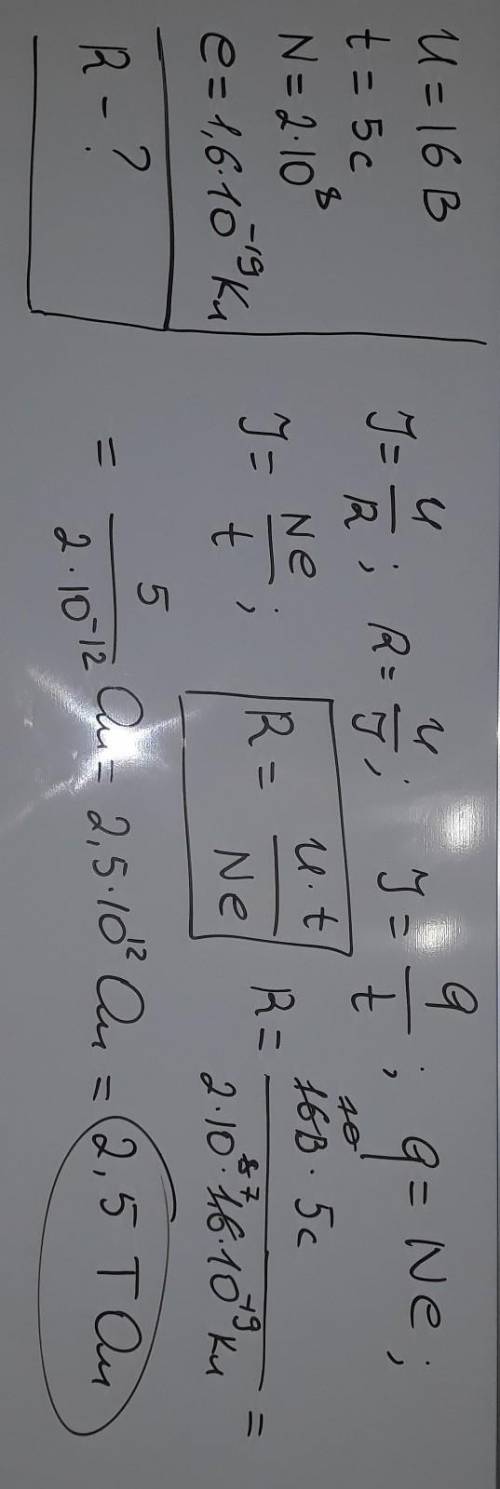 U = 16 В
t = 5с
N = 2·10⁸
e = 1,6·10⁻¹⁹ Кл
R - ?
I = U/R; R = U/I; I = q/t; q = Ne;
I = Ne/t; R = U·t/Ne R = 16В · 5с / 2·10⁷·16·10⁻¹⁹ Кл =
= 5/2·10⁻¹² Ом = 2,5·10¹² Ом = 2,5 ТОм